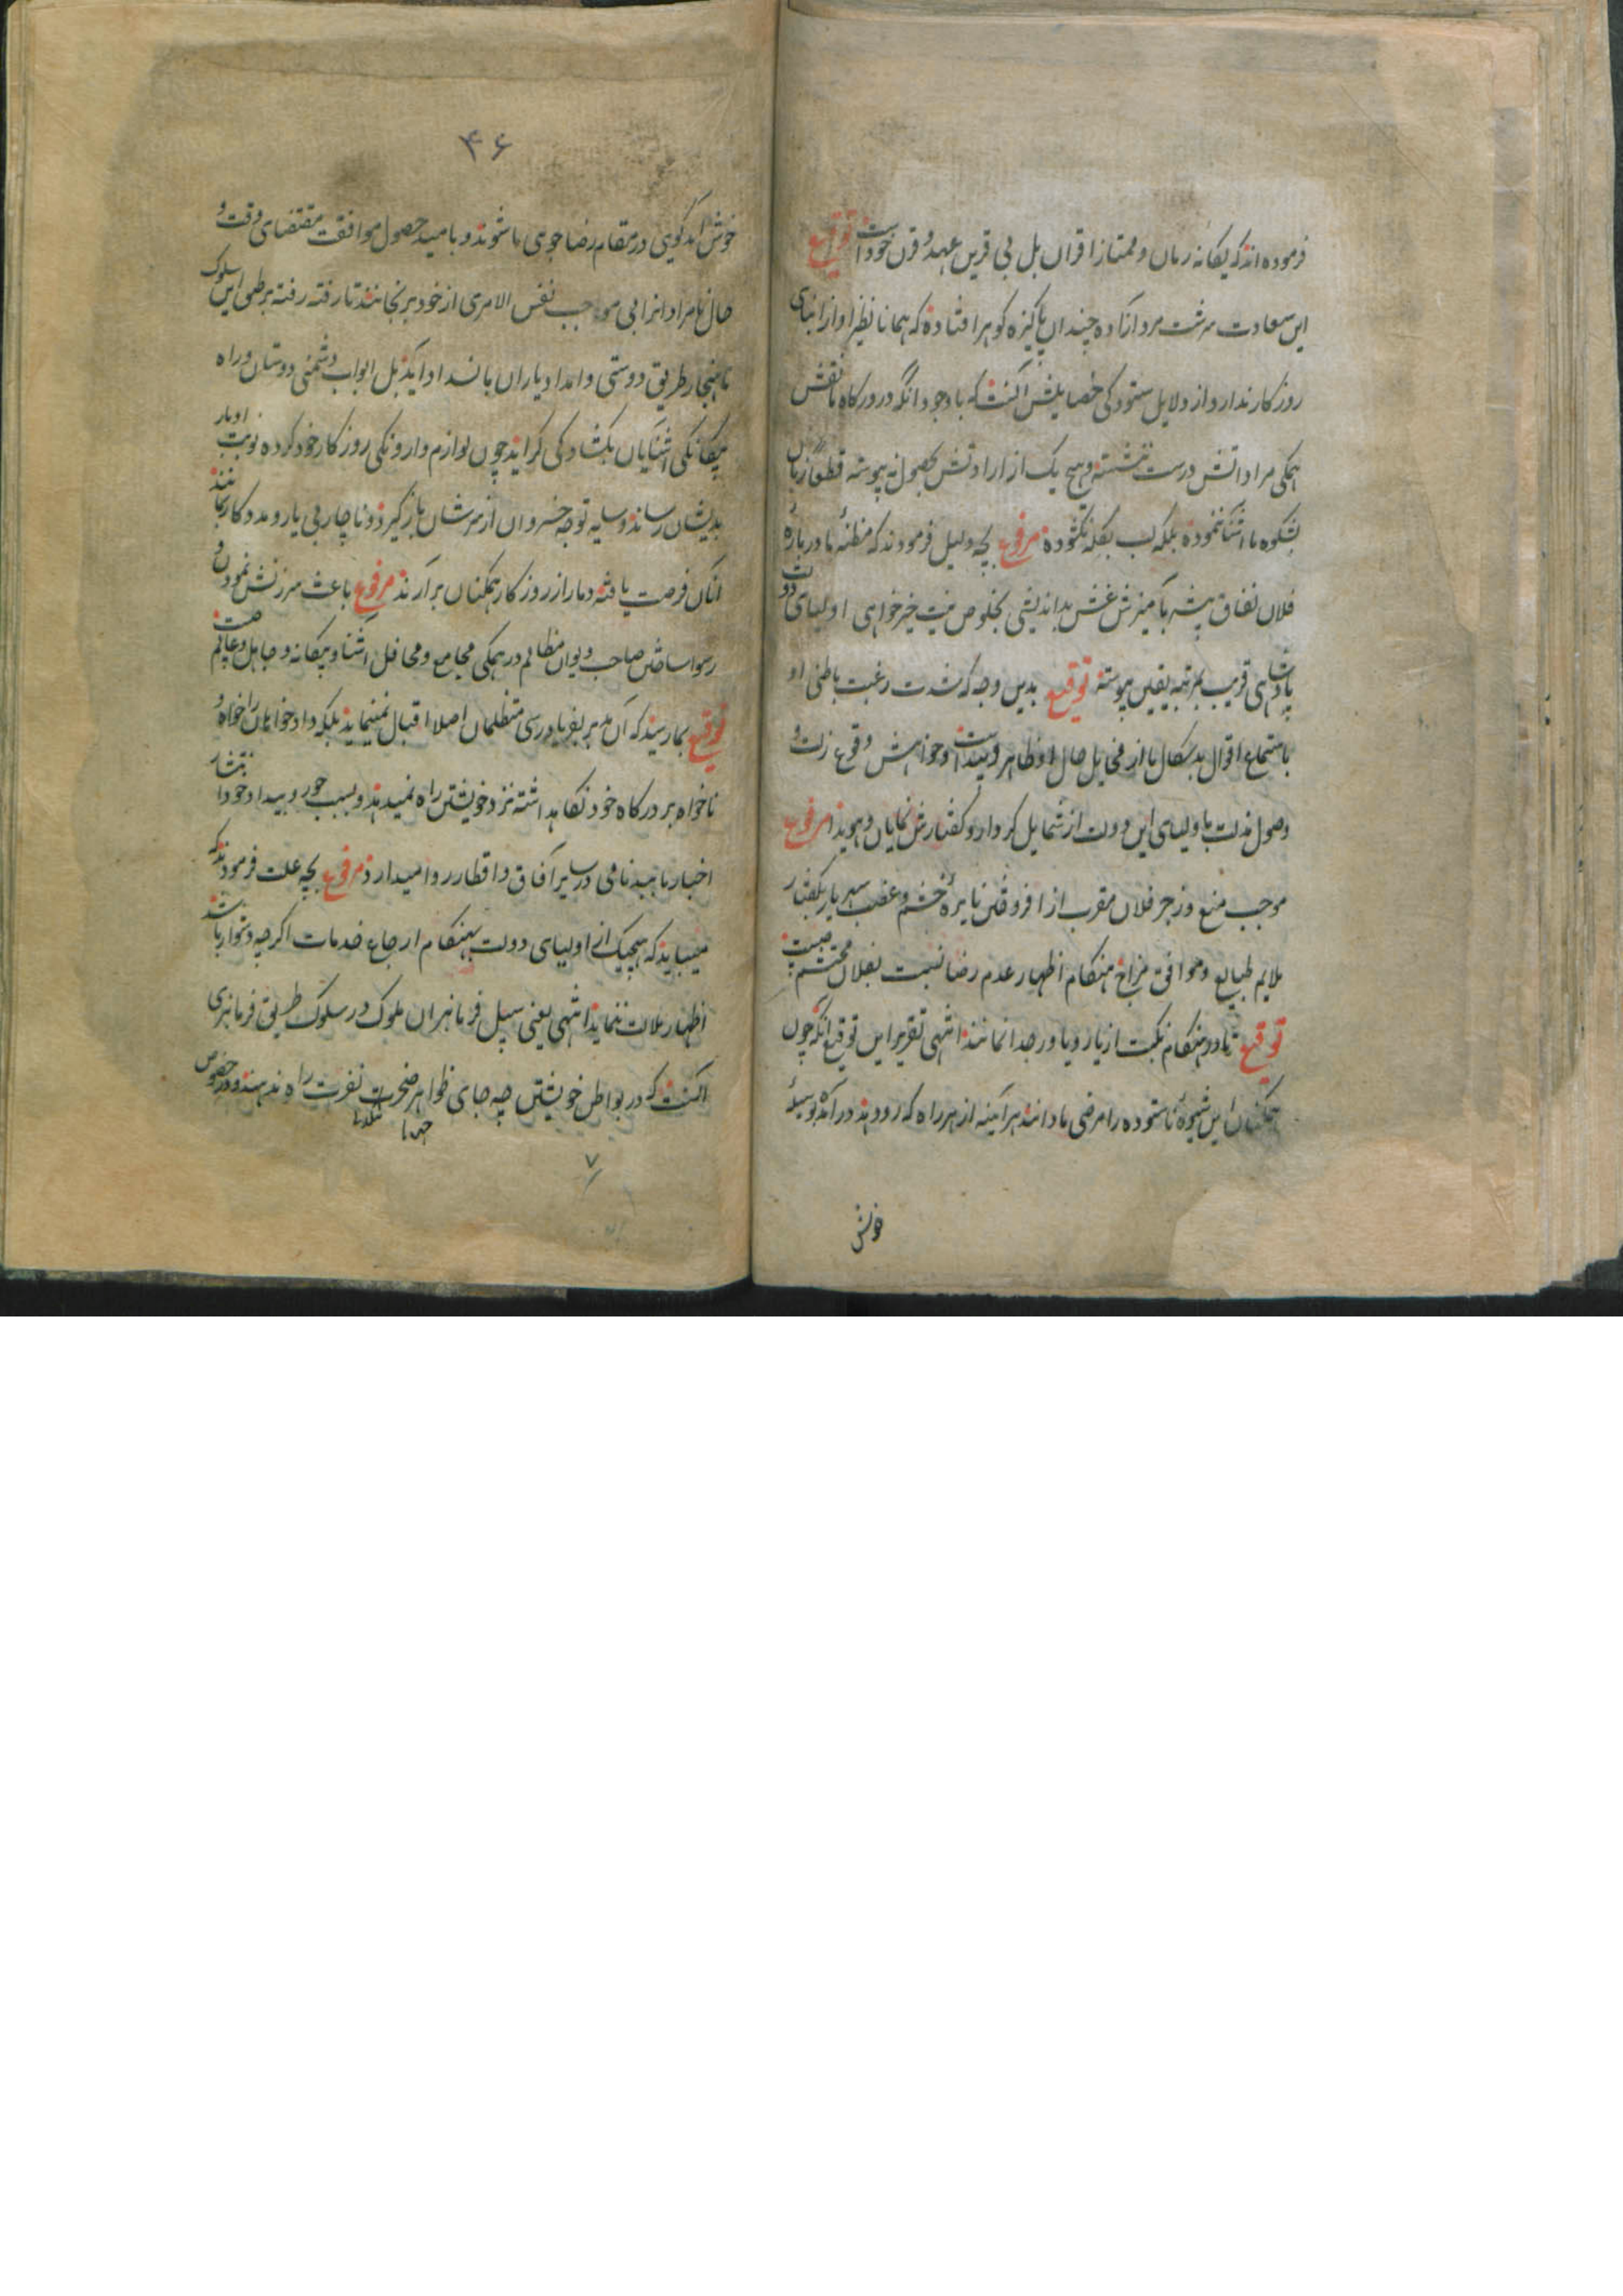 فرموده اند که یکانه زمان و ممتاز اقران بل بی قرین عهد و قرن خود است توقیع
این سعادت سرشت مرد آزاده چندان پاکیزه کوهر افتاده که همانا نظیر او از ابنای
روزکار ندارد و از دلایل ستودکی خصایلش آنست که با وجود آنکه در درکاه ما نقش
همکی مراداتش درست ننشسته و هیچ یک از اراداتش بحصول نه پیوسته قطعا زبان
بشکوه ما آشنا ننموده بلکه لب بکله نکشوده مرفوع بچه دلیل فرمودند که مظنهٔ ما دربارهٔ
فلان نفاق پیشه بآمیزش غش بداندیشی بخلوص نیت خیرخواهی اولیای دولت
پادشاهی قریب بمرتبه یقین پیوسته توقیع بدین وجه که شدت رغبت باطنی او
باستماع اقوال بدسکال ما از مخایل حال او ظاهر و پیداست و خواهش وقوع زلت و
وصول مذلت باولیای این دولت از شمایل کردار و کفتارش نمایان و هویدا مرفوع
موجب منع و زجر فلان مقرب از افروختن نایرهٔ خشم و غضب شهریار بکفتار
ملایم طبایع و موافق مزاج هنکام اظهار عدم رضا نسبت بفلان محتشم چیست
توقیع تا در هنکام نکبت از یار و یاور جدا نمانند انتهی تقریر این توقیع آنکه چون
همکنان این شیوهٔ ناستوده را مرضی ما دانند هر آینه از هر راه که رو دهد در آمده بوسیلهٔ
خوش
۴۶
خوش آمد کویی در مقام رضا جویی ما شوند و بامید حصول موافقت مقتضای وقت و
حال نامرادانرا بی موجب نفس الامری از خود برنجانند تا رفته رفته بر طی این سلوک
ناهنجار طریق دوستی و امداد یاران بانسداد آید بل ابواب دشمنی دوستان و راه
بیکانکی آشنایان بکشادکی کراید چون لوازم وارونکی روزکار خود کرده نوبت ادبار
بدیشان رساند و سایه توجه خسروان از سرشان بازکیرد و ناچار بی یار و مددکار مانند
آنکان فرصت یافته دمار از روزکار همکنان برآرند مرفوع باعث سرزنش نمودن و
رسوا ساختن صاحب دیوان مظالم در همکی مجامع و محافل آشنا و بیکانه و جاهل و عالم چیست
توقیع بما رسید که آن مدبر بفریاد رسی متظلمان اصلا اقبال نمینماید بلکه داد خواهان را خواه و
ناخواه بر درکاه خود نکاه داشته نزد خویشتن راه نمیدهد و بسبب جور و بیداد خود انتشار
اخبار ناپسند نامی در سایر آفاق و اقطار روا میدارد مرفوع بچه علت فرمودند که
میباید که هیچیک از اولیای دولت بهنکام ارجاع خدمات اکرچه دشوار باشد
اظهار ملالت ننماید انتهی یعنی سبیل فرمانبران ملوک در سلوک طریق فرمانبری
آنست که در بواطن خویشتن چه جای ظواهر ضجرت نفرت راه ندهند و در خصوص